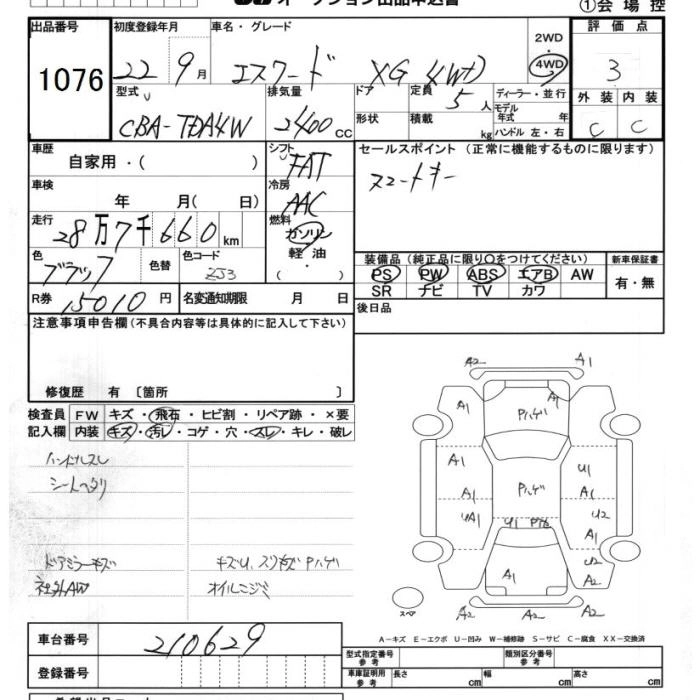 オークション出品申込書
①会場控
出品番号 1076
初度登録年月 22 9月
車名・グレード エスワード XG 4WD
2WD 4WD
評価点 3
外装 C 内装 C
型式 CBA-
排気量 2400 cc
ドア 形状
定員 5人
積載 kg
ディーラー・並行
モデル年式 年
ハンドル 左・右
車歴 自家用・( )
シフト FAT
セールスポイント (正常に機能するものに限ります)
スマートキー
車検 年 月( 日)
冷房 AAC
走行 28万7千660km
燃料 ガソリン 軽油・( )
色 ブラック 色替 色コード
装備品 (純正品に限り○をつけてください)
PS PW ABS エアB AW
SR ナビ TV カワ
新車保証書 有・無
R券 15010円
名変通知期限 月 日
後日品
注意事項申告欄(不具合内容等は具体的に記入して下さい)
修復歴 有 〔箇所 〕
検査員記入欄
FW キズ・飛石・ヒビ割・リペア跡・×要
内装 キズ・汚レ・コゲ・穴・スレ・キレ・破レ
ハンドルスレ
シートヘタリ
ドアミラーキズ
社外AW
キズU、スリキズ Pハゲ
オイルニジミ
A2 A1
A1 A1
Pハゲ
A1 U1
A1 Pハゲ A1
UA1 U2
U1 A1
A1 A2
A2 A2 A2
スペア
A-キズ E-エクボ U-凹み W-補修跡 S-サビ C-腐食 XX-交換済
車台番号 210629
登録番号
型式指定番号 参考
類別区分番号 参考
車庫証明用 参考 長さ cm 幅 cm 高さ cm